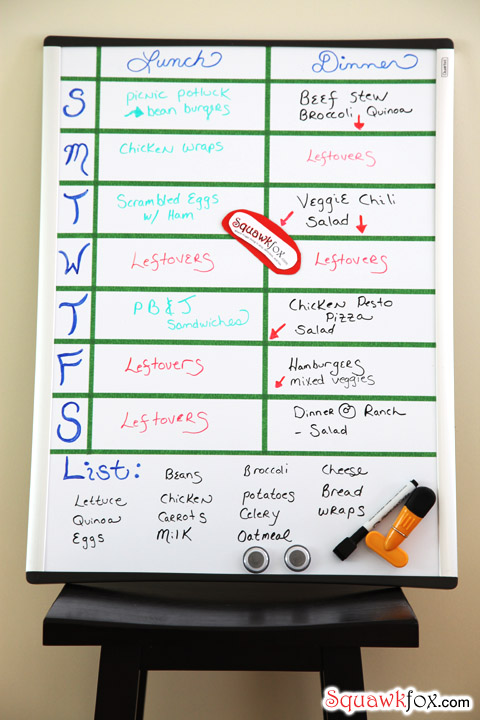 Lunch Dinner
S
picnic potluck
bean burgers
BEEF Stew
Broccoli Quinoa
M
Chicken Wraps
Leftovers
T
Scrambled Eggs
w/ Ham
Veggie Chili
Salad
Squawkfox.com
W
Leftovers
Leftovers
T
PB & J
Sandwiches
Chicken Pesto
Pizza
Salad
F
Leftovers
Hamburgers
mixed veggies
S
Leftovers
Dinner @ Ranch
- Salad
List:
Beans
Broccoli
Cheese
Lettuce
Chicken
potatoes
Bread
Quinoa
Carrots
Celery
wraps
Eggs
Milk
Oatmeal
Squawkfox.com